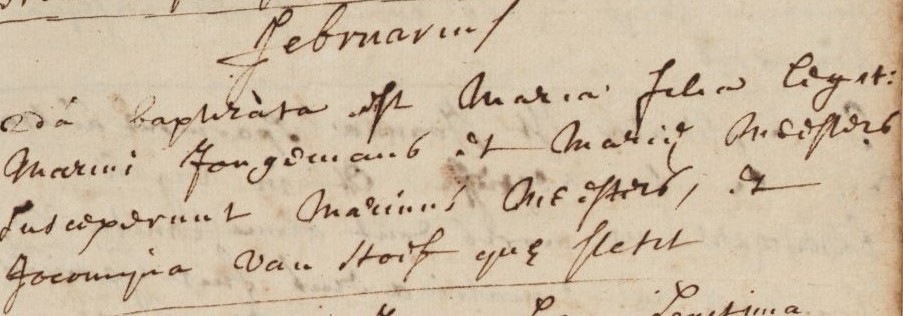 Februarius
2da baptizata est Maria filia legit:
Marini Jongemans et Marię Meesters
susceperunt Marinus Meesters, et
Jacomijna van stetit
quę
Legitima